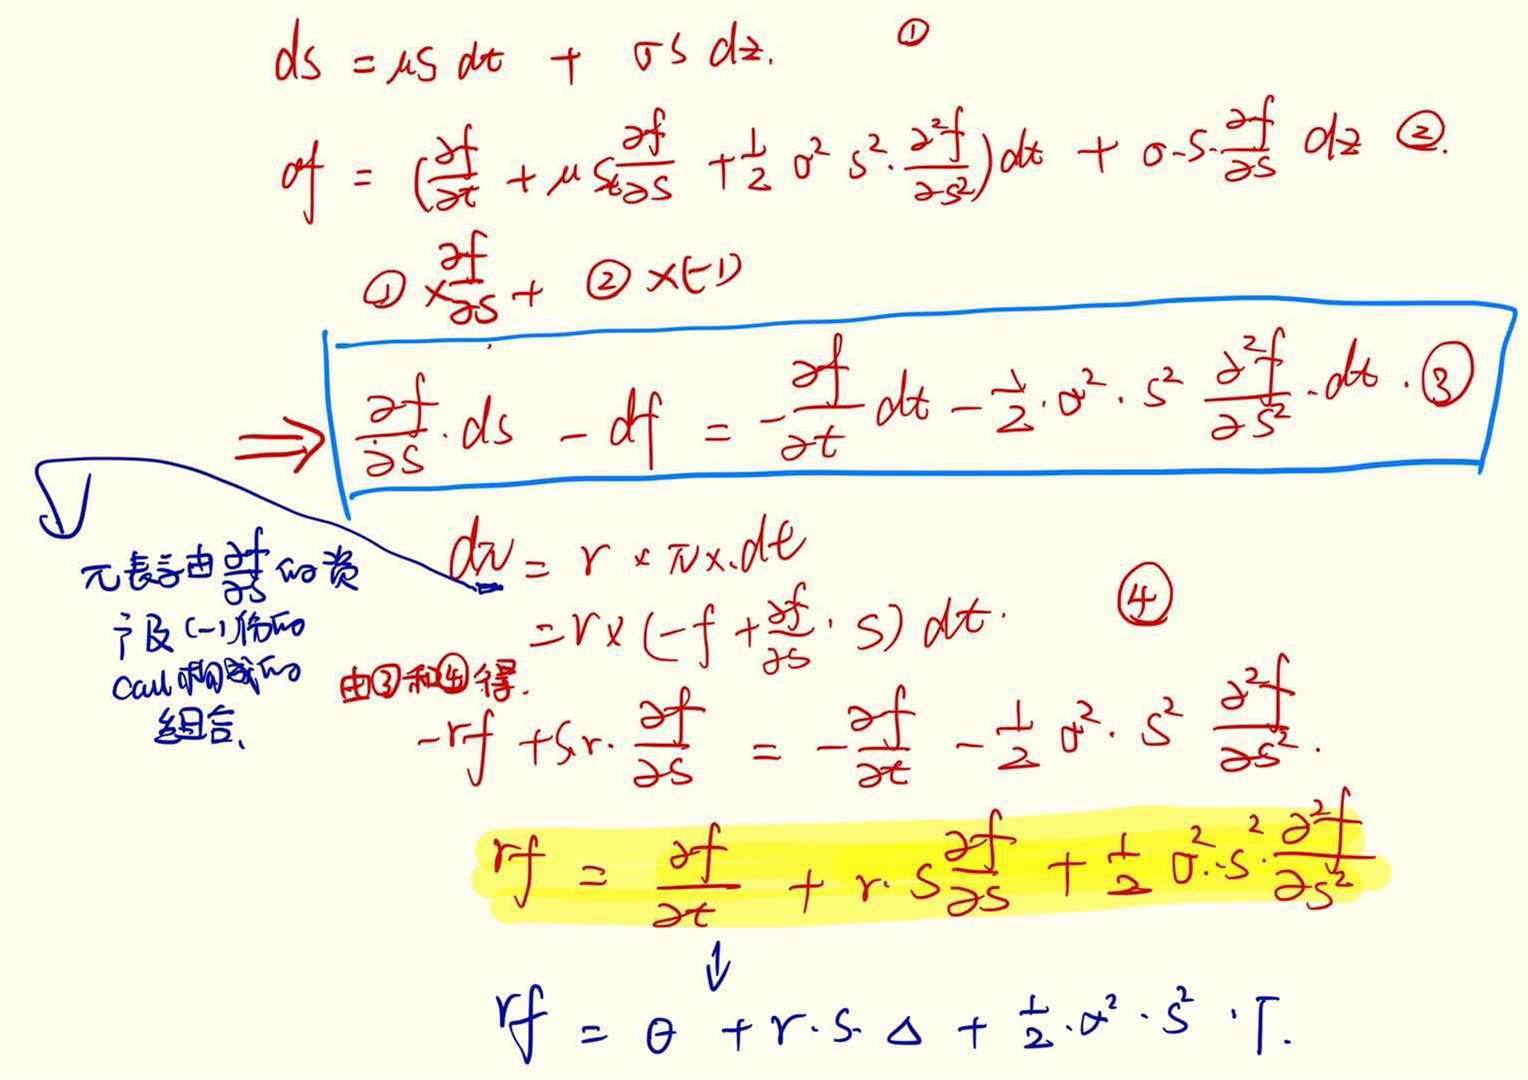 ds = μs dt + σs dz. ①
df = (∂f/∂t + μS ∂f/∂S + 1/2 σ² S² · ∂²f/∂S²) dt + σ·S· ∂f/∂S dz ②.
① × ∂f/∂S + ② ×(-1)
⇒ ∂f/∂S · ds - df = - ∂f/∂t dt - 1/2 · σ² · S² ∂²f/∂S² · dt · ③
dπ = r × π × · dt
= r × (-f + ∂f/∂S · S) dt · ④
π表示由 ∂f/∂S 的资
产及(-1)份的
Call 构成的
组合.
由③和④得.
-rf + S·r· ∂f/∂S = - ∂f/∂t - 1/2 σ² · S² ∂²f/∂S² .
rf = ∂f/∂t + r · S ∂f/∂S + 1/2 σ² · S² · ∂²f/∂S²
↓
rf = θ + r · S · Δ + 1/2 · σ² · S² · Γ.